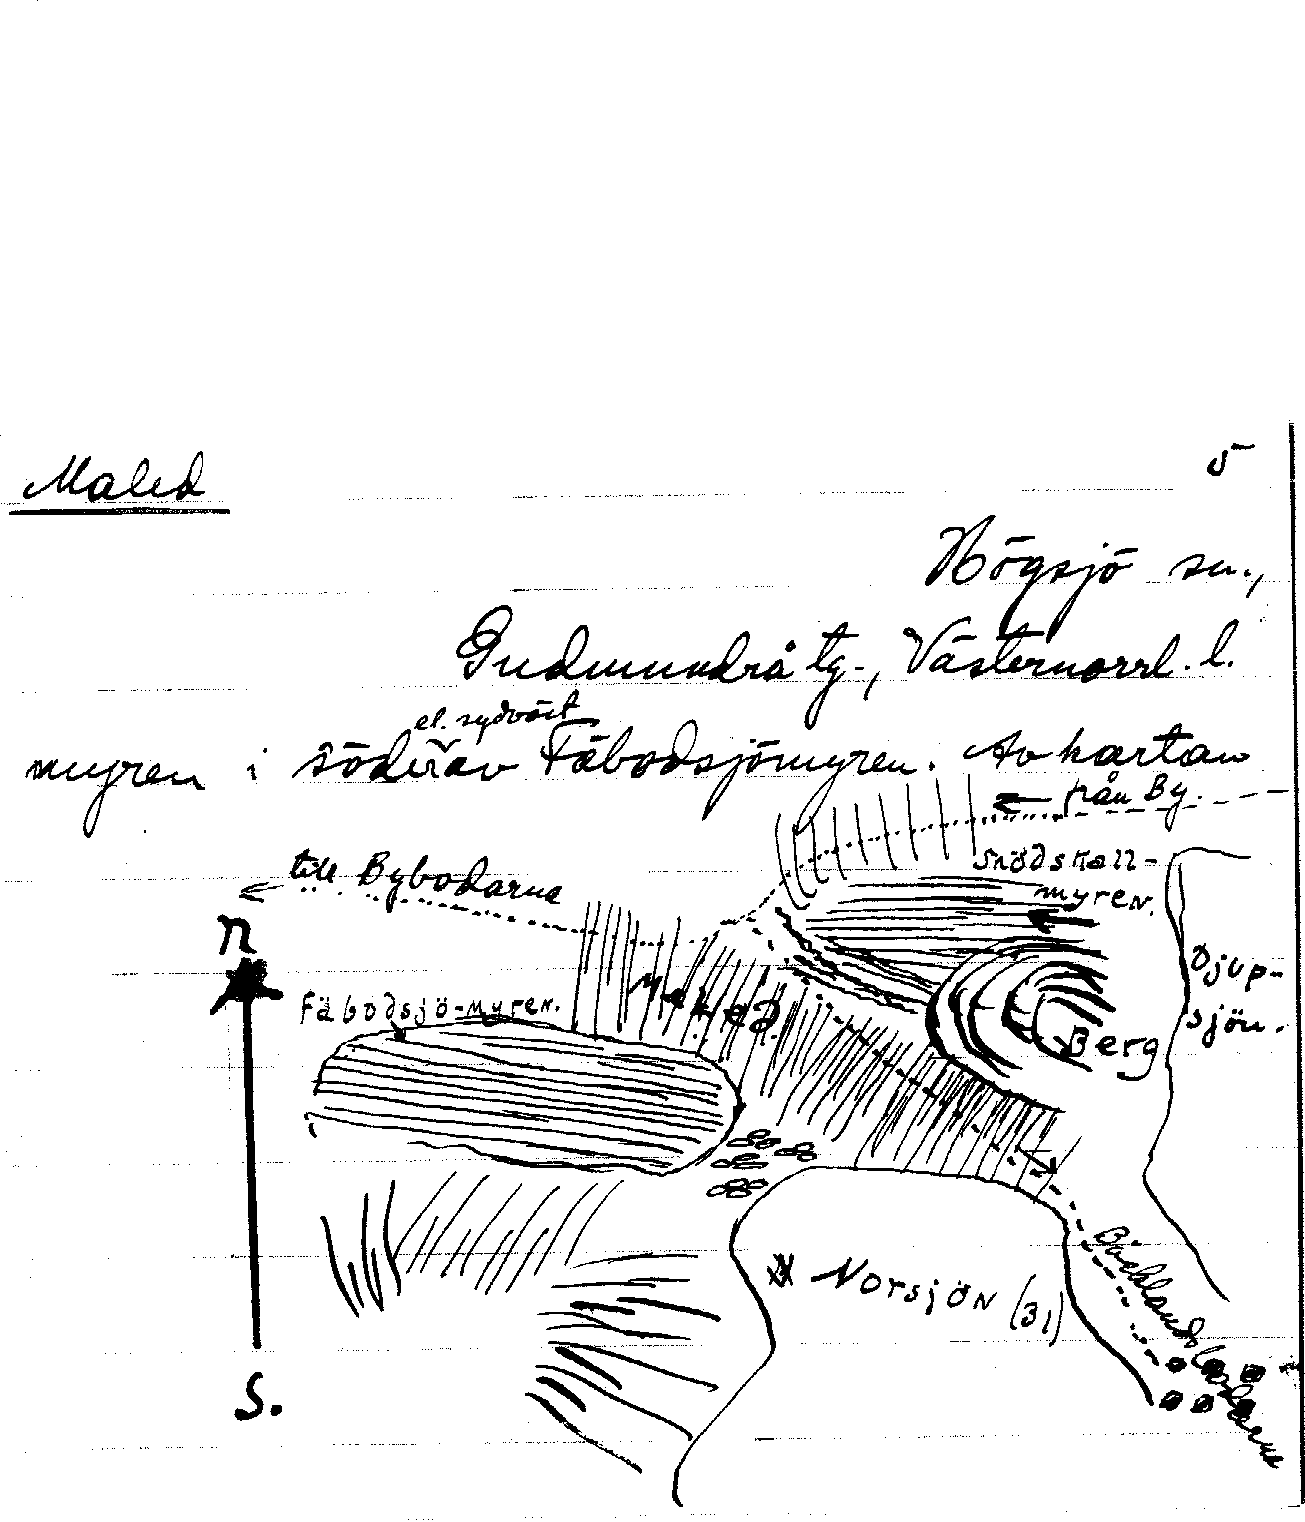 Maled
5
Högsjö sn.,
Gudmundrå tg., Västernorrl. l.
el. sydväst
myren i söder av Fäbodsjömyren. Av kartan
från By.
till Bybodarna
Snödskall-
myren.
n
Djup-
sjön.
Fäbodsjö-myren.
Maled
Berg
Norsjön (31)
S.